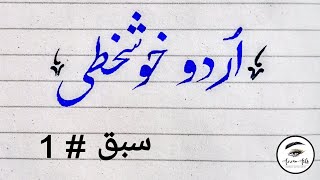 اُردو خوشخطی
سبق # 1